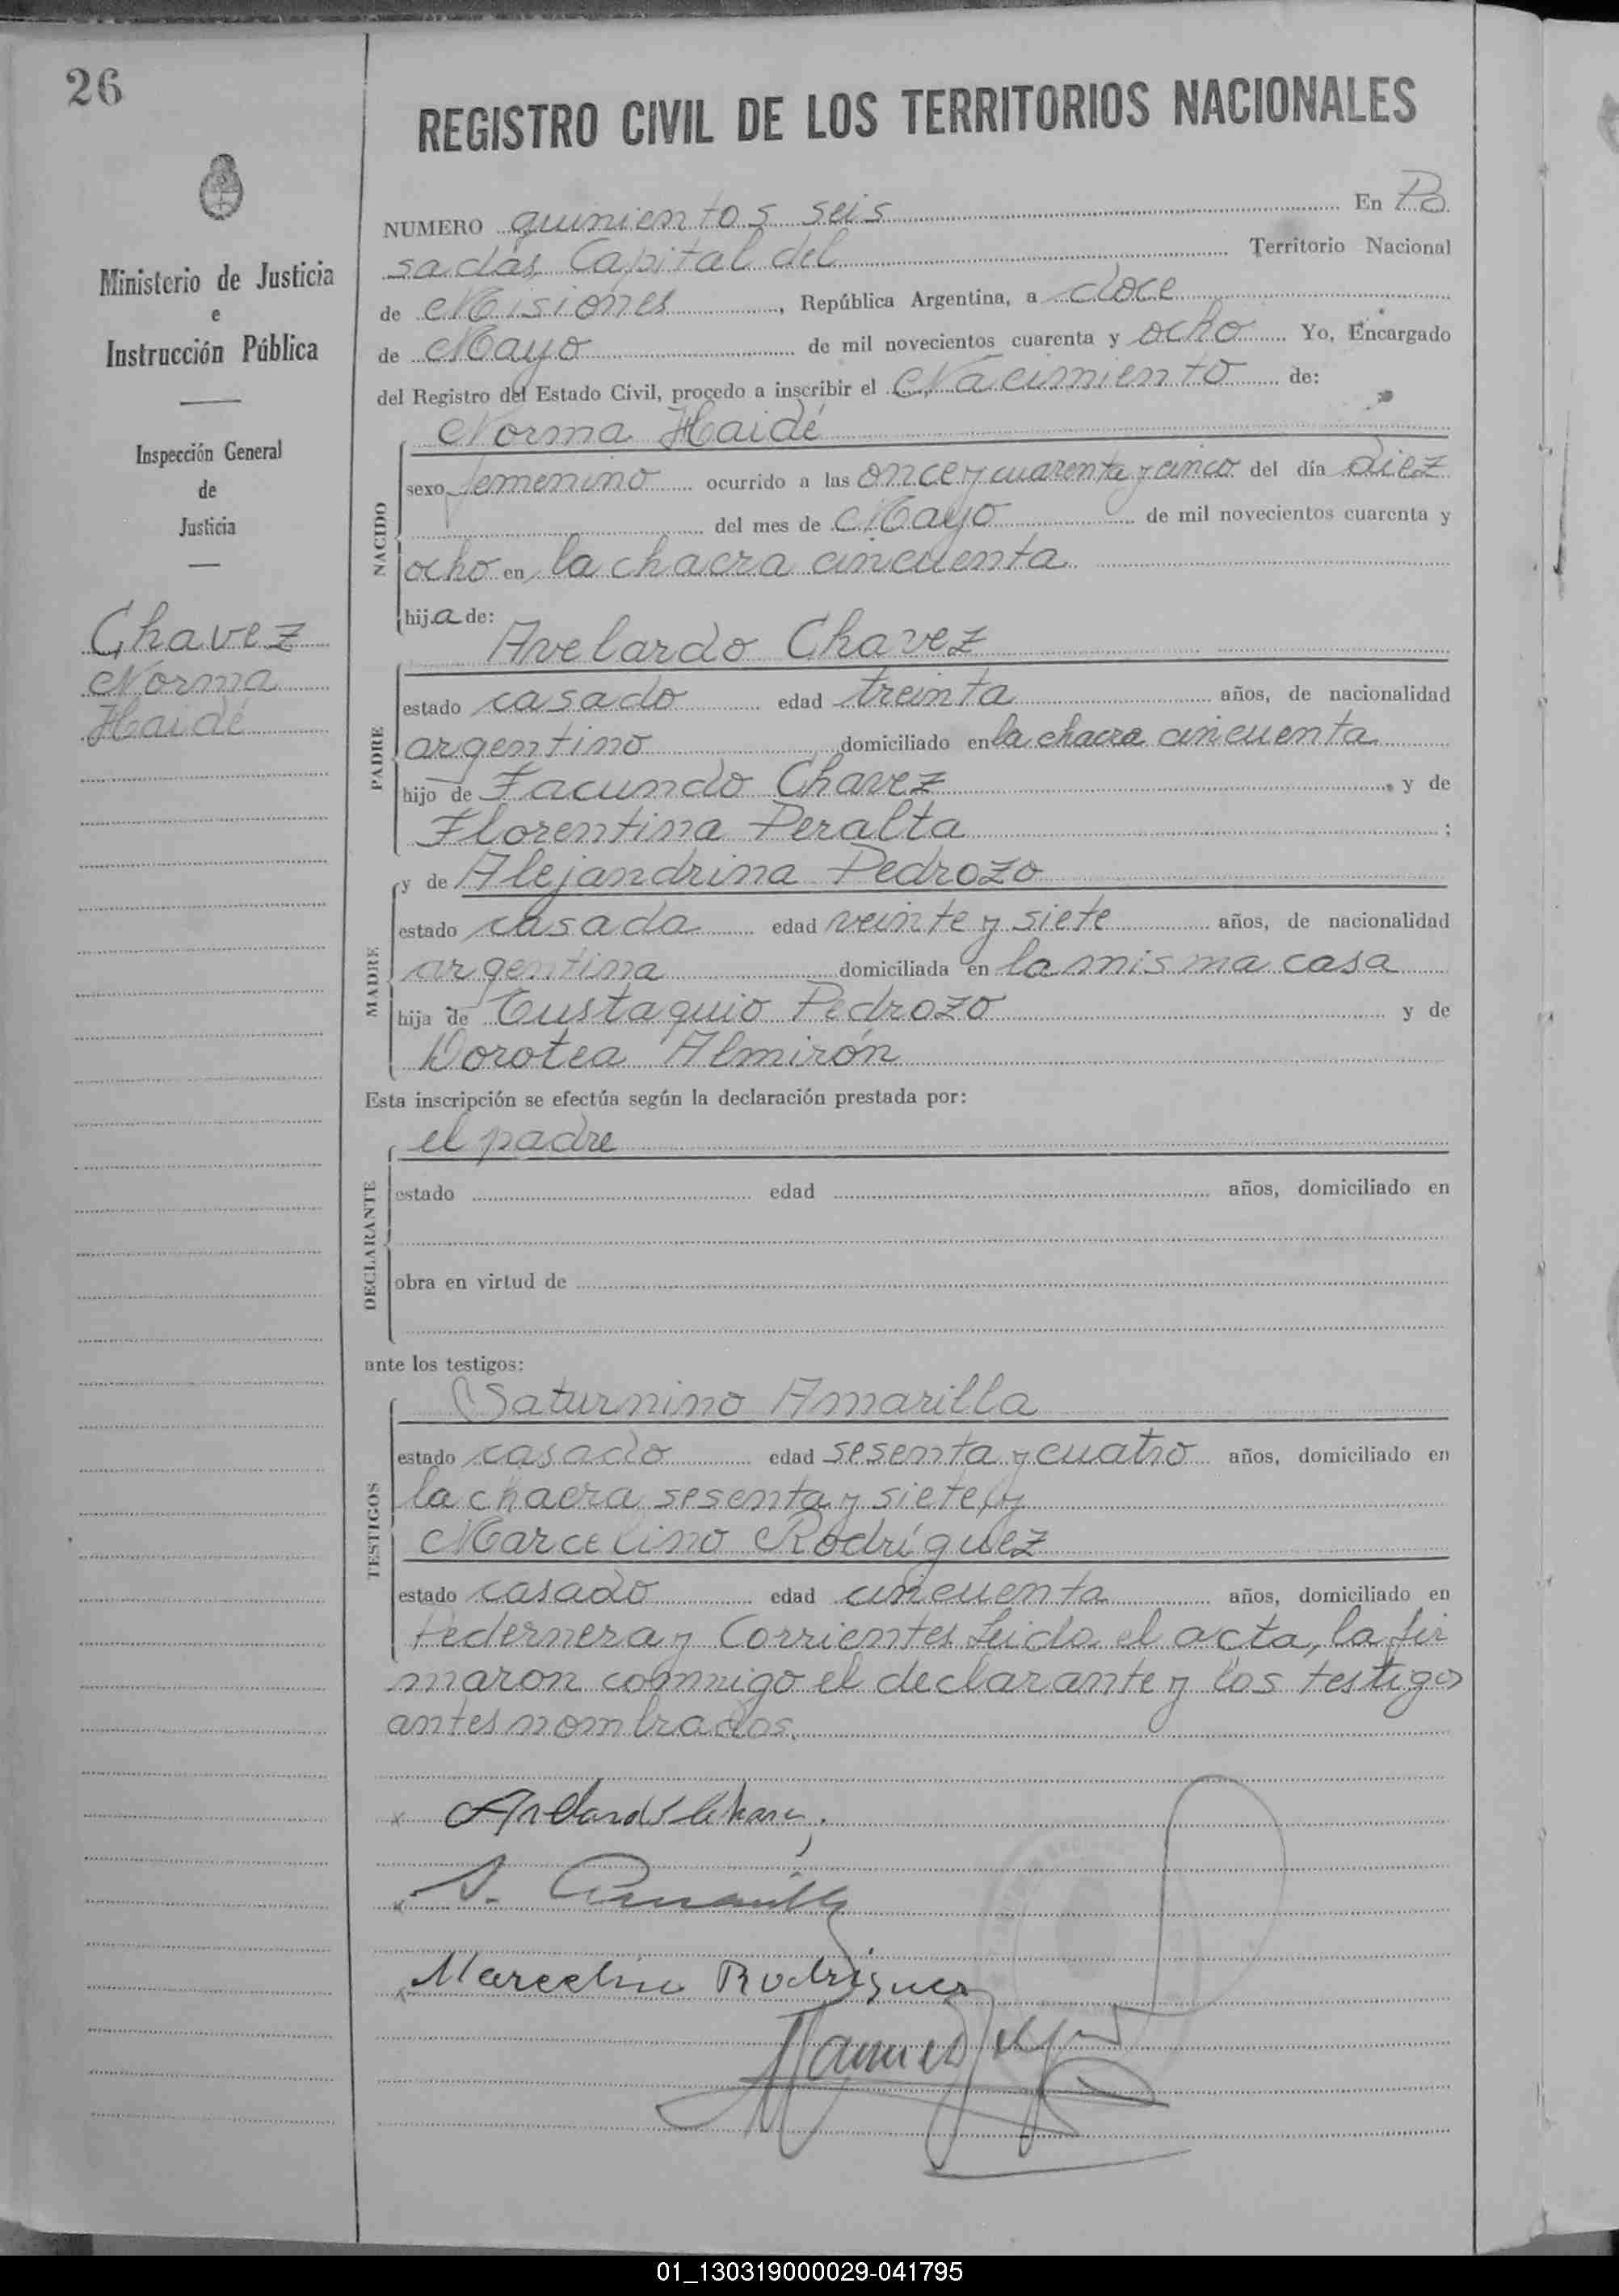 26
REGISTRO CIVIL DE LOS TERRITORIOS NACIONALES
Ministerio de Justicia
e
Instrucción Pública
Inspección General
de
Justicia
Chavez
Norma
Haidé
NUMERO quinientos seis En Po
sadas Capital del Territorio Nacional
de Misiones, República Argentina, a doce
de Mayo de mil novecientos cuarenta y ocho Yo, Encargado
del Registro del Estado Civil, procedo a inscribir el Nacimiento de:
Norma Haidé
NACIDO
sexo femenino ocurrido a las once y cuarenta y cinco del día diez
del mes de Mayo de mil novecientos cuarenta y
ocho en la chacra cincuenta
hija de:
Avelardo Chavez
PADRE
estado casado edad treinta años, de nacionalidad
argentino domiciliado en la chacra cincuenta
hijo de Facundo Chavez y de
Florentina Peralta ;
y de Alejandrina Pedrozo
MADRE
estado casada edad veinte y siete años, de nacionalidad
argentina domiciliada en la misma casa
hija de Eustaquio Pedrozo y de
Dorotea Almirón
Esta inscripción se efectúa según la declaración prestada por:
el padre
DECLARANTE
estado edad años, domiciliado en
obra en virtud de
ante los testigos:
Saturnino Amarilla
TESTIGOS
estado casado edad sesenta y cuatro años, domiciliado en
la chacra sesenta y siete, y
Marcelino Rodríguez
estado casado edad cincuenta años, domiciliado en
Pedernera y Corrientes Leida el acta, la fir
maron conmigo el declarante y los testigos
antes nombrados.
Avelardo Chavez
S. Amarilla
Marcelino Rodriguez
01_130319000029-041795